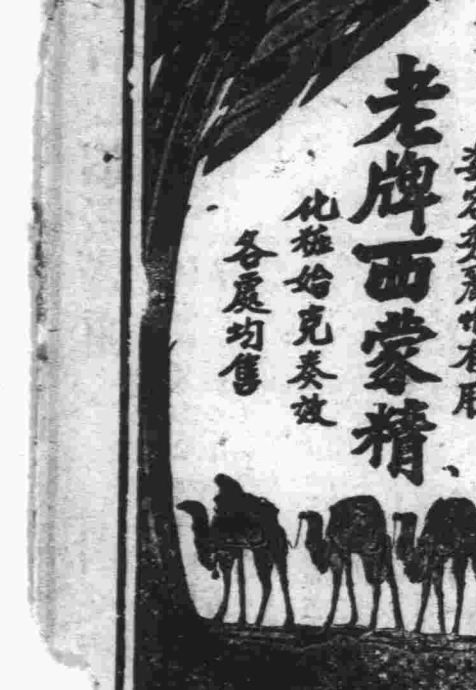 老牌西蒙精
化粧始克奏效
各處均售